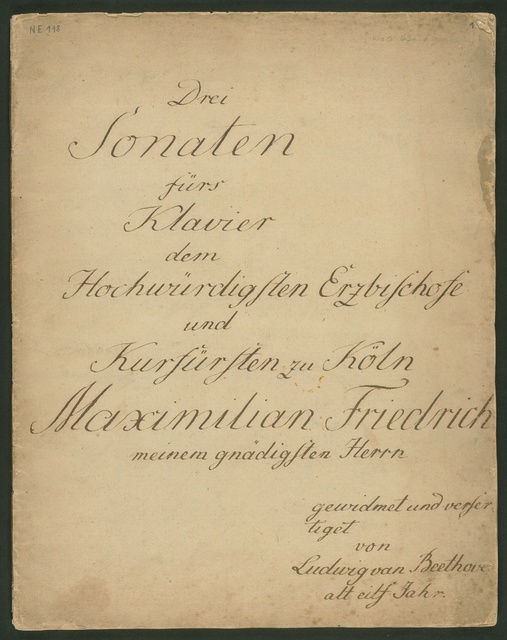 NE 118
1
Drei
Sonaten
fürs
Klavier
dem
Hochwürdigſten Erzbiſchofe
und
Kurfürſten zu Köln
Maximilian Friedrich
meinem gnädigſten Herrn
gewidmet und verfer
tiget
von
Ludwig van Beethove
alt eilf Jahr.